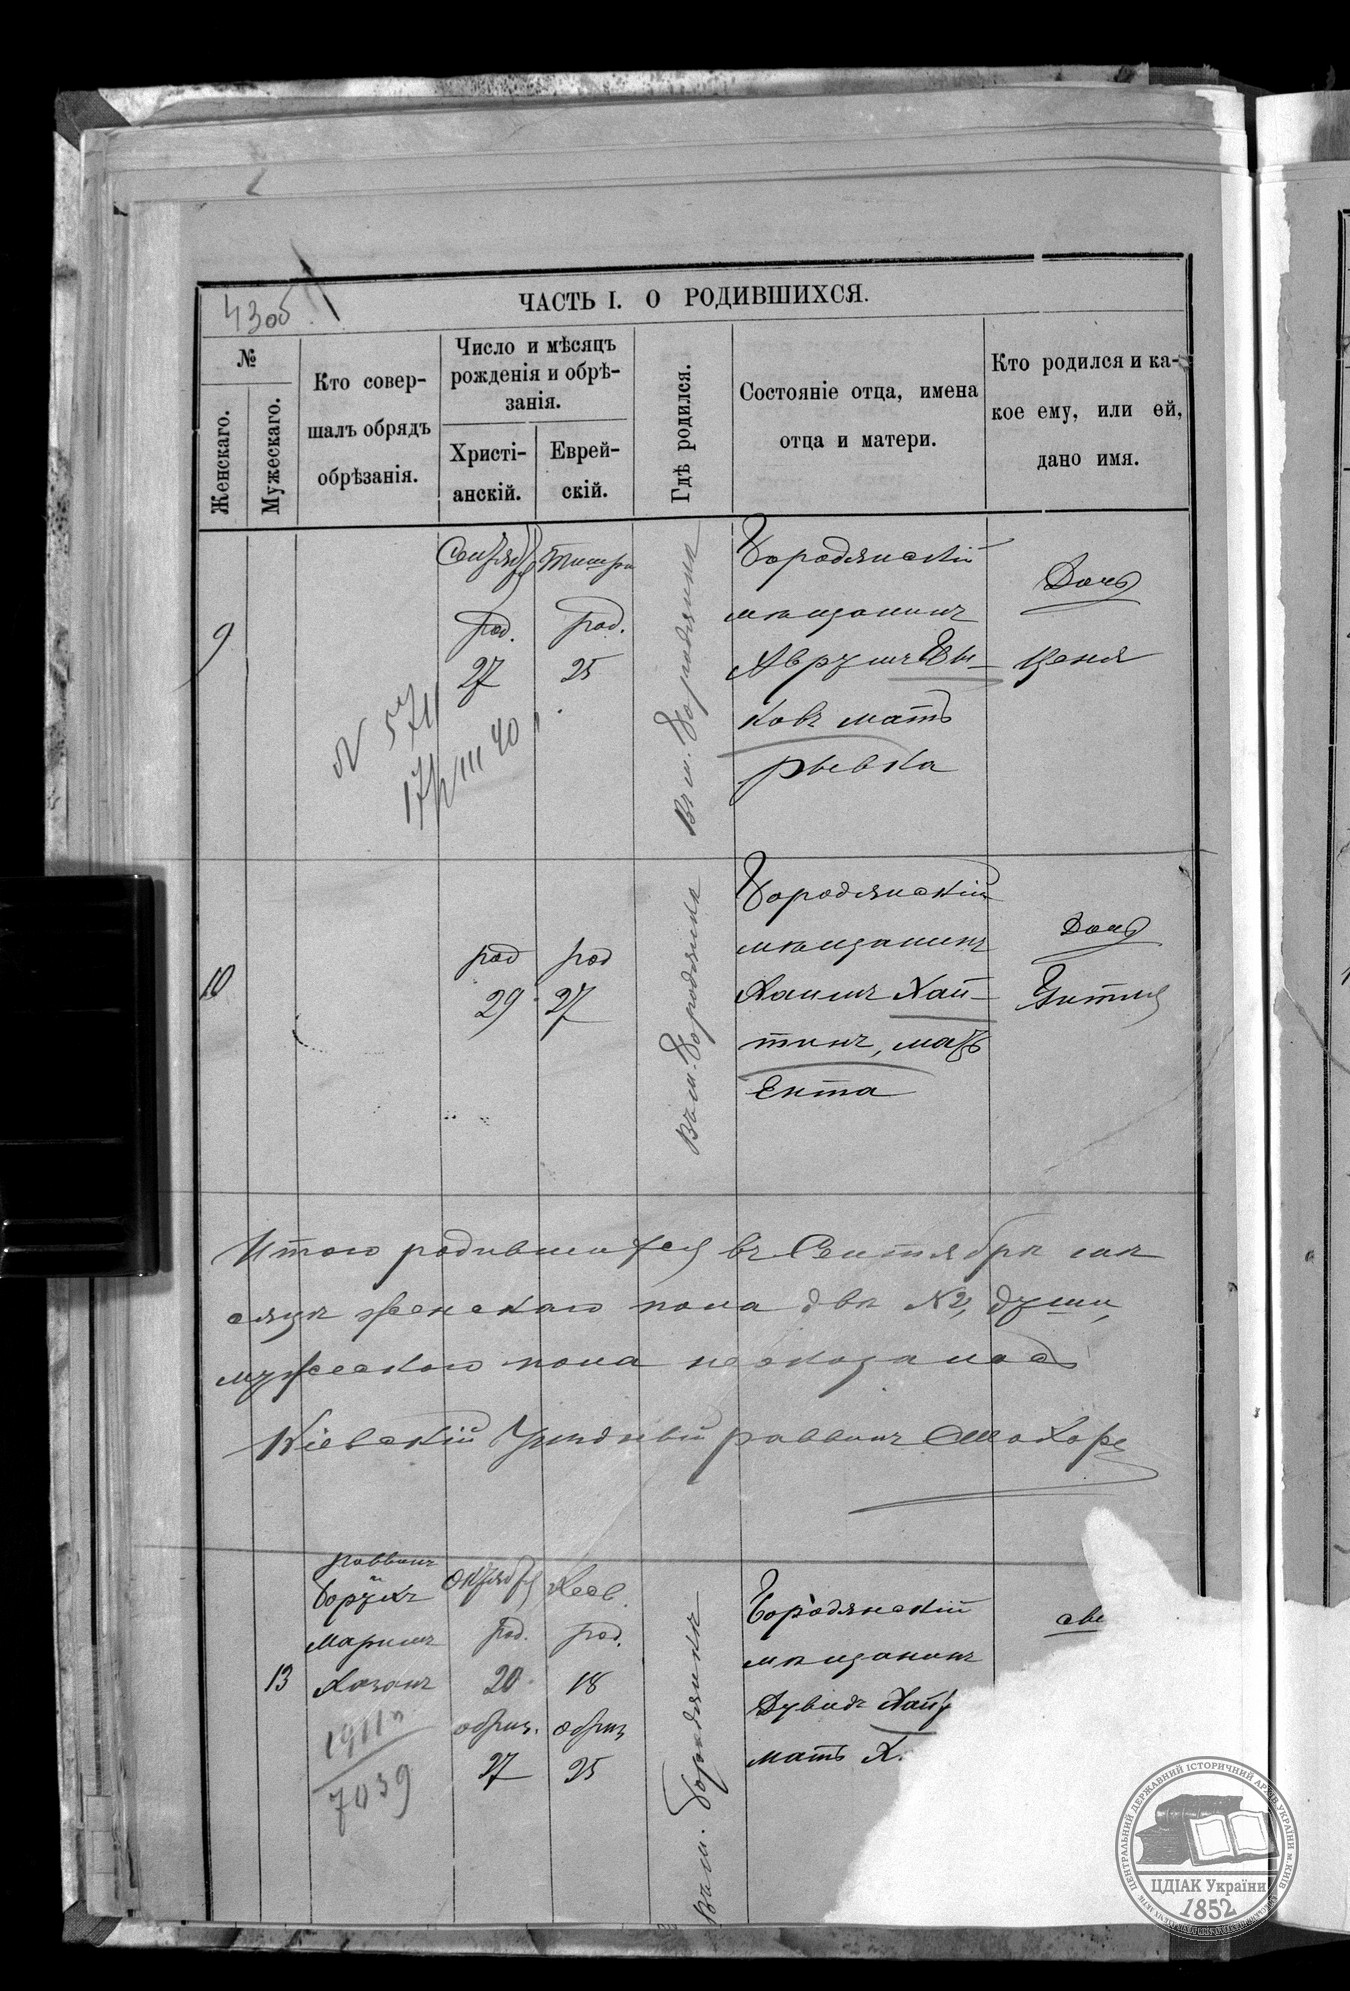 43 об
ЧАСТЬ I. О РОДИВШИХСЯ.
№
Женскаго.
Мужескаго.
Кто совер-
шалъ обрядъ
обрѣзанія.
Число и мѣсяцъ
рожденія и обрѣ-
занія.
Христі-
анскій.
Еврей-
скій.
Гдѣ родился.
Состояніе отца, имена
отца и матери.
Кто родился и ка-
кое ему, или ей,
дано имя.
9
Сентябрь
род.
27
Тишри
род.
25
Въ м. Бородянка
Бородянскій
мѣщанинъ
Аврумъ
ковъ мать
Рывка
Дочь
Ценя
N 571
10
род
29
род
27
Въ м. Бородянка
Бородянскій
мѣщанинъ
Хаимъ Хай-
тинъ, мать
Ента
Дочь
Гитля
Итого родившихся въ Сентябрѣ мѣ
сяцѣ женскаго пола двѣ №2, души,
мужескаго пола неоказалось
Кіевскій Уѣздный раввинъ
раввинъ
Борухъ
Хазанъ
1911
7039
13
Октябрь
род.
20
обрѣз.
27
Хесв.
род.
18
обрѣз
25
Въ м. Бородянкѣ
Бородянскій
мѣщанинъ
Дувидъ
мать Х.
ЦЕНТРАЛЬНИЙ ДЕРЖАВНИЙ ІСТОРИЧНИЙ АРХІВ УКРАЇНИ М.КИЇВ
ЦДІАК України
1852